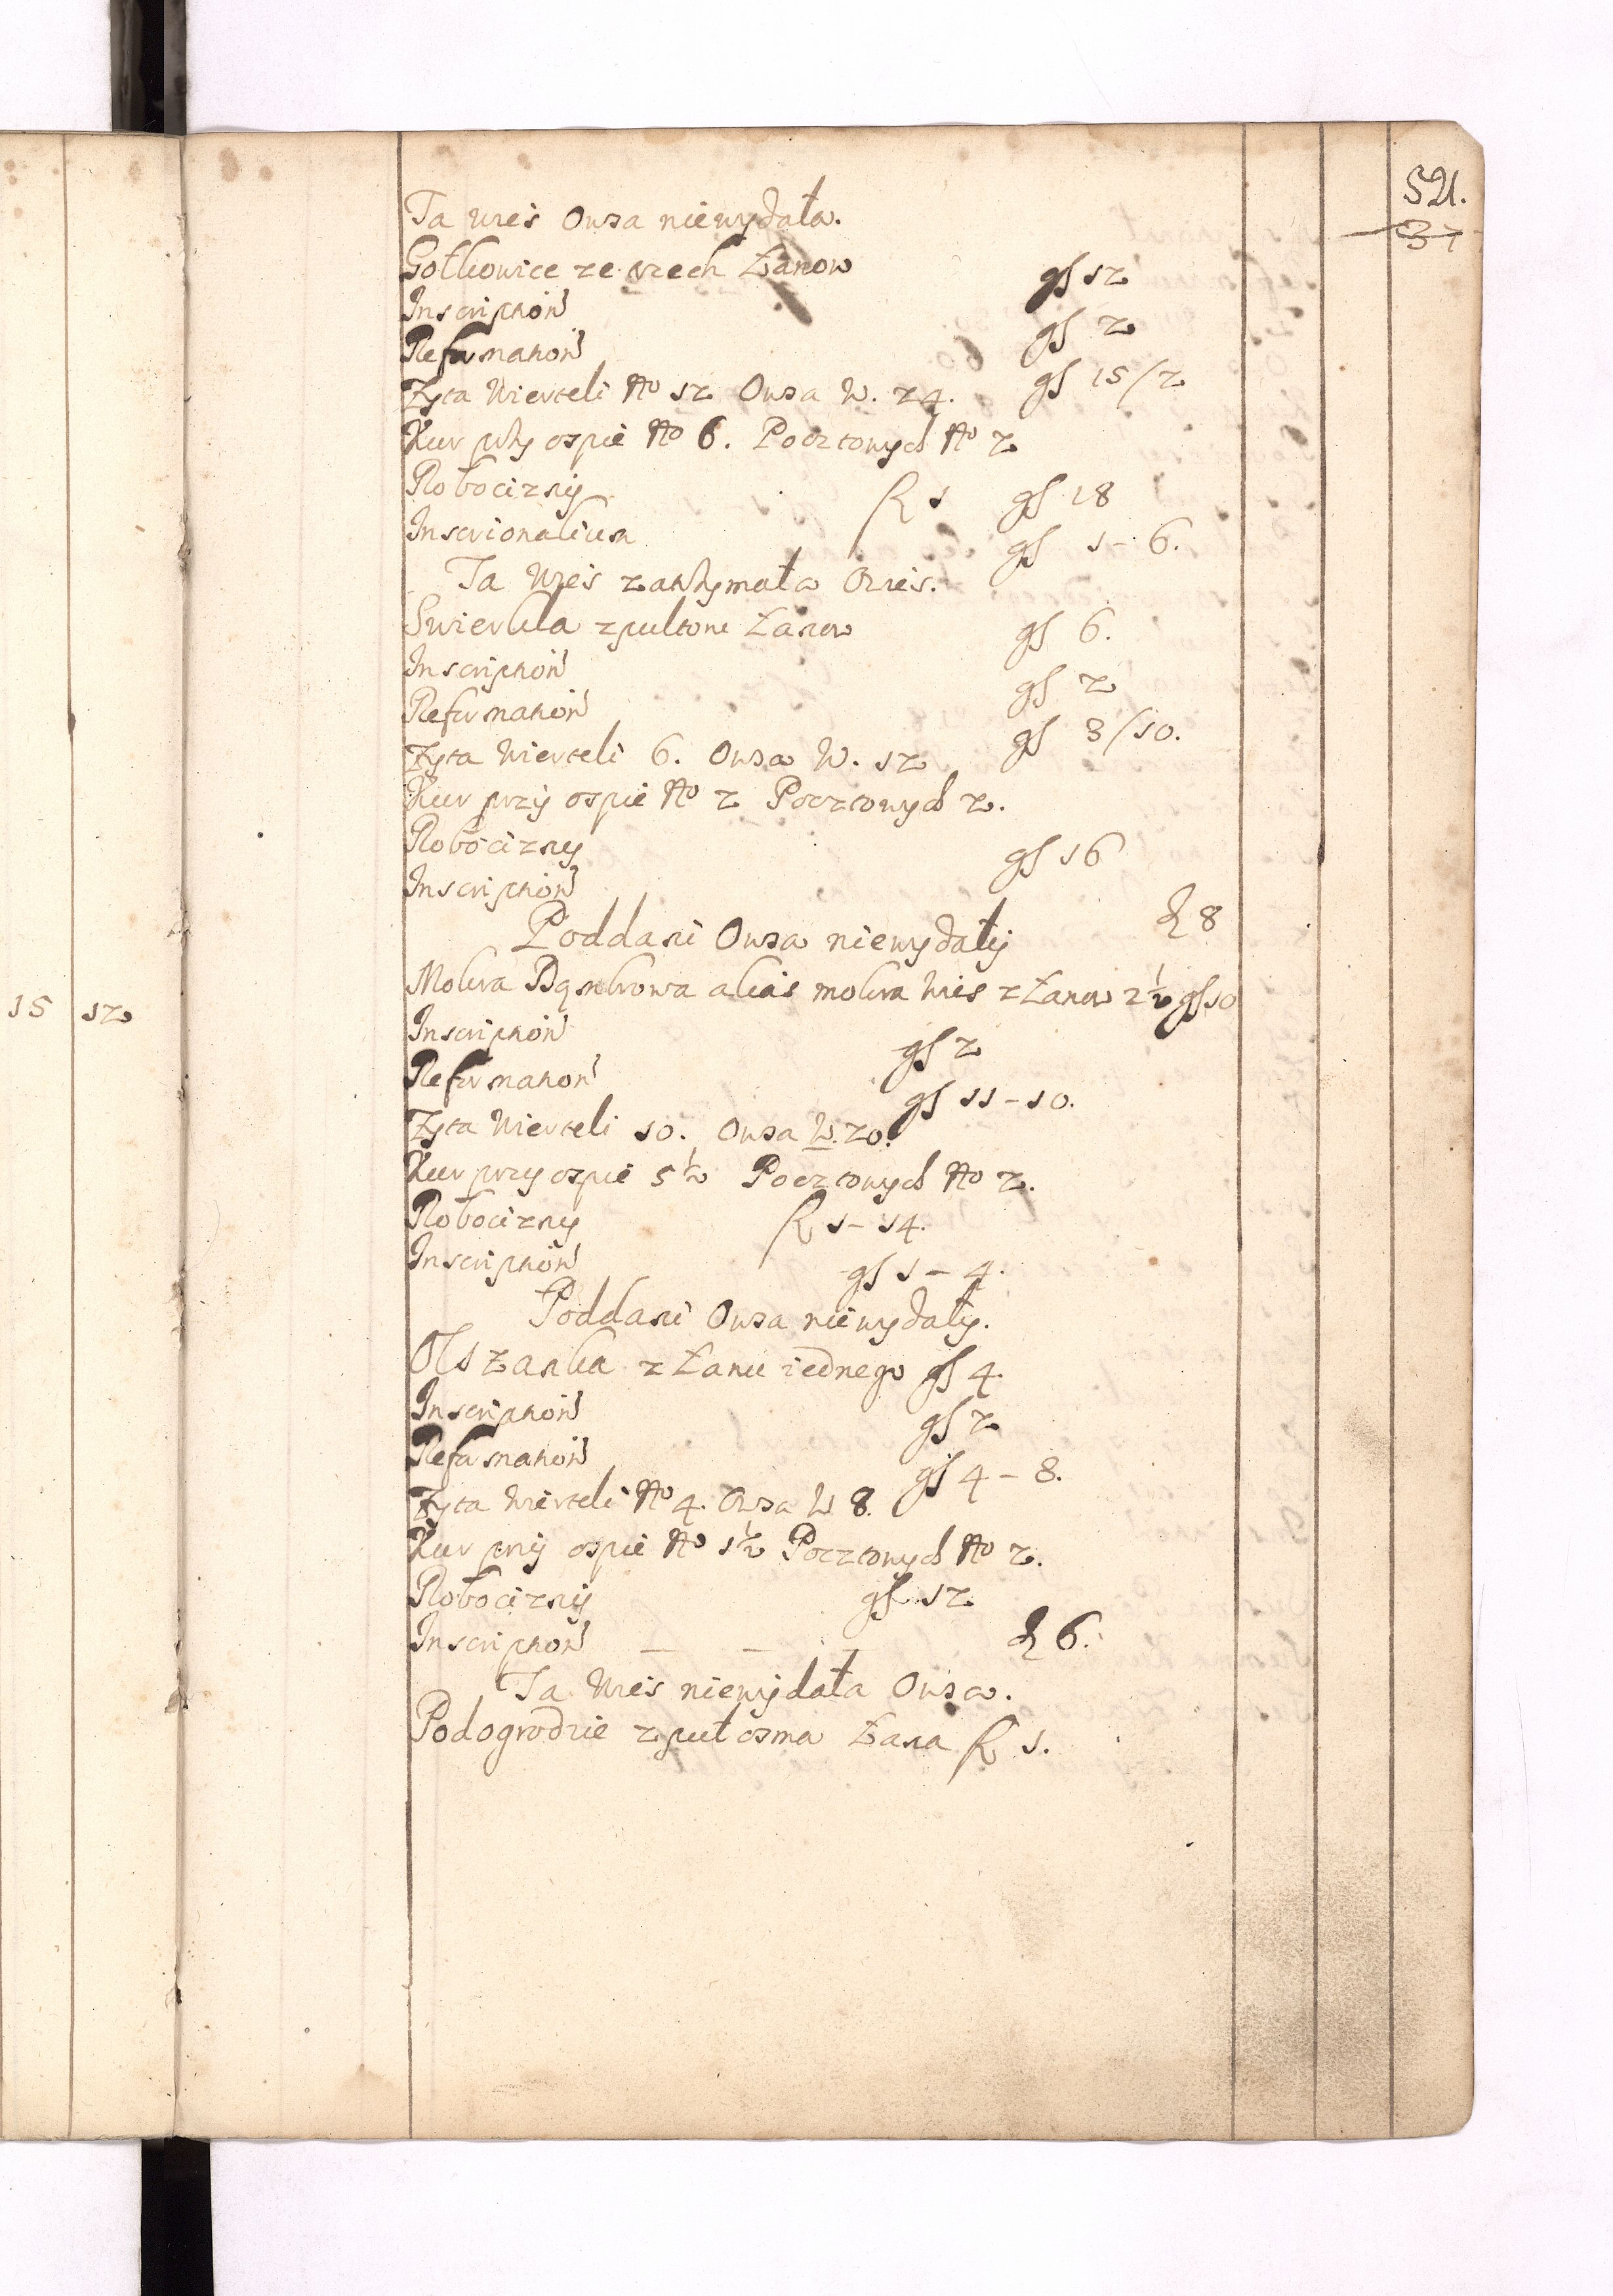 521.
37
Ta wies Owsa niewydała.
Gołkowice ze trzech Łanow gſ 12
Inscription gſ 2
Reformation gſ 15/2
Zyta Wierteli No 12 Owsa W. 24.
Kur przy ospie No 6. Pocztowych No 2
Robocizny ſ 1 gſ 18
Inscrionalium gſ 1-6.
Ta Wies zatrzymała Owies.
Swierkla zpultone Łanow gſ 6.
Inscription gſ 2
Reformation gſ 8/10.
Zyta Wierteli 6. Owsa W. 12
Kur przy ospie No 2 Pocztowych 2.
Robocizny gſ 16
Inscription
Poddani Owsa niewydały 8
Mokra Dąmbrowa alias mokra Wies z Łanow 2½ gſ 10
Inscription gſ 2
Reformation gſ 11-10.
Zyta Wierteli 10. Owsa W. 20.
Kur przy ospie 5½ Pocztowych No 2.
Robocizny 1-14.
Inscription gſ 1-4.
Poddani Owsa niewydały.
Olszanka z Łanu iednego gſ 4.
Inscription gſ 2
Reformation gſ 4-8.
Zyta Wierteli No 4. Owsa W 8.
Kur przy ospie No 1½ Pocztowych No 2.
Robocizny gſ 12
Inscription — — — 6.
Ta Wies niewydała Owsa.
Podogrodzie zpułosma Łana 1.
15 12